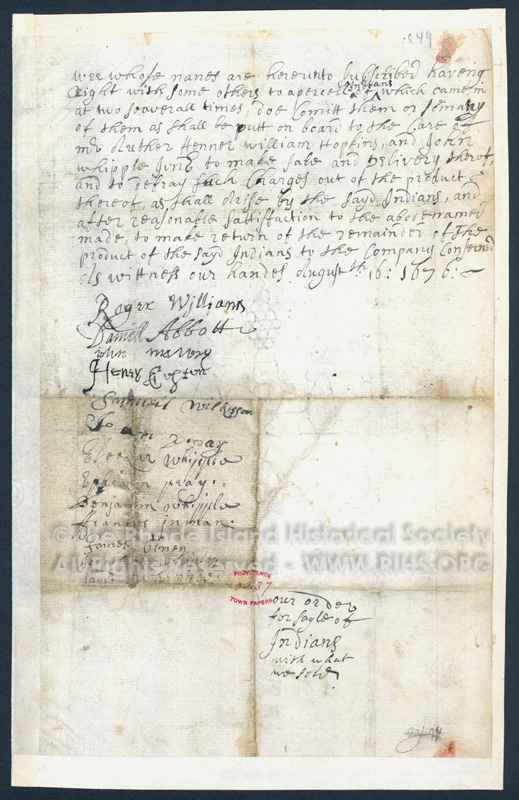 849
wee whose names are hereunto subscribed having
Right with some others to a percell of Indians which came in
at two seaverall times, doe Comitt them or soe many
of them as shall be putt on board to the Care of
mr Auther Fenner William Hopkins, and John
whipple Junr to make sale and Delivery therof,
and to defray such Charges out of the product
thereof, as shall arise by the sayd Indians, and
after reasonable sattisfaction to the above named
made, to make return of the remainder of the
product of the sayd Indians to the Company Conserned
As wittness our handes August th: 16: 1676:
Roger Williams
Daniell Abbott
John mawry
Henery
Samuell Wilkinson
Eleazar whipple
Ephraim pray:
Benjamin whipple
Francis inman:
James
© The Rhode Island Historical Society
All Rights Reserved - WWW.RIHS.ORG
PROVIDENCE
0237
TOWN PAPERS
our order
for sayle of
Indians
with what
we sold